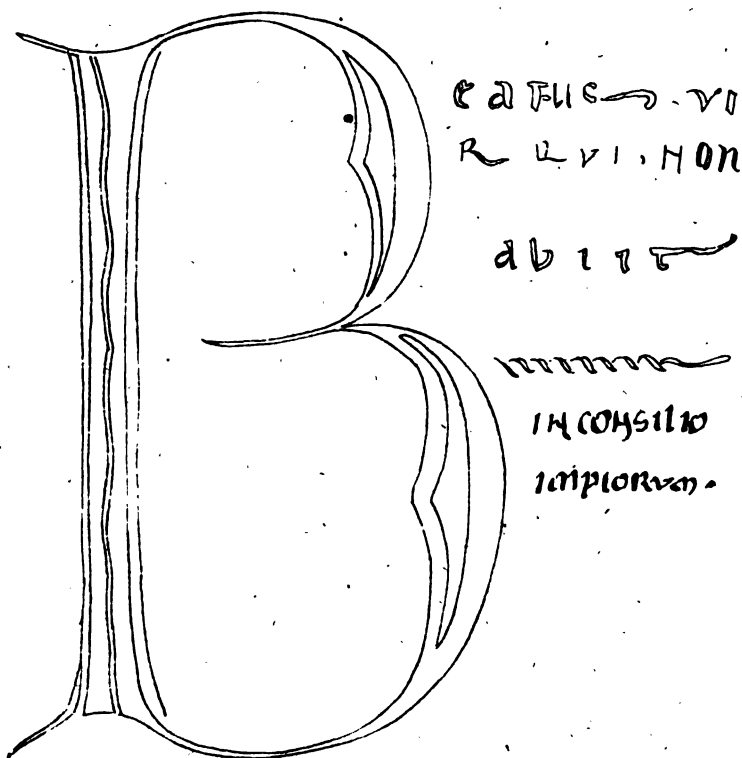 B
eaTUS. VI
R QVI. NON
abiiT
IN CONSILIO
IMPIORVM.